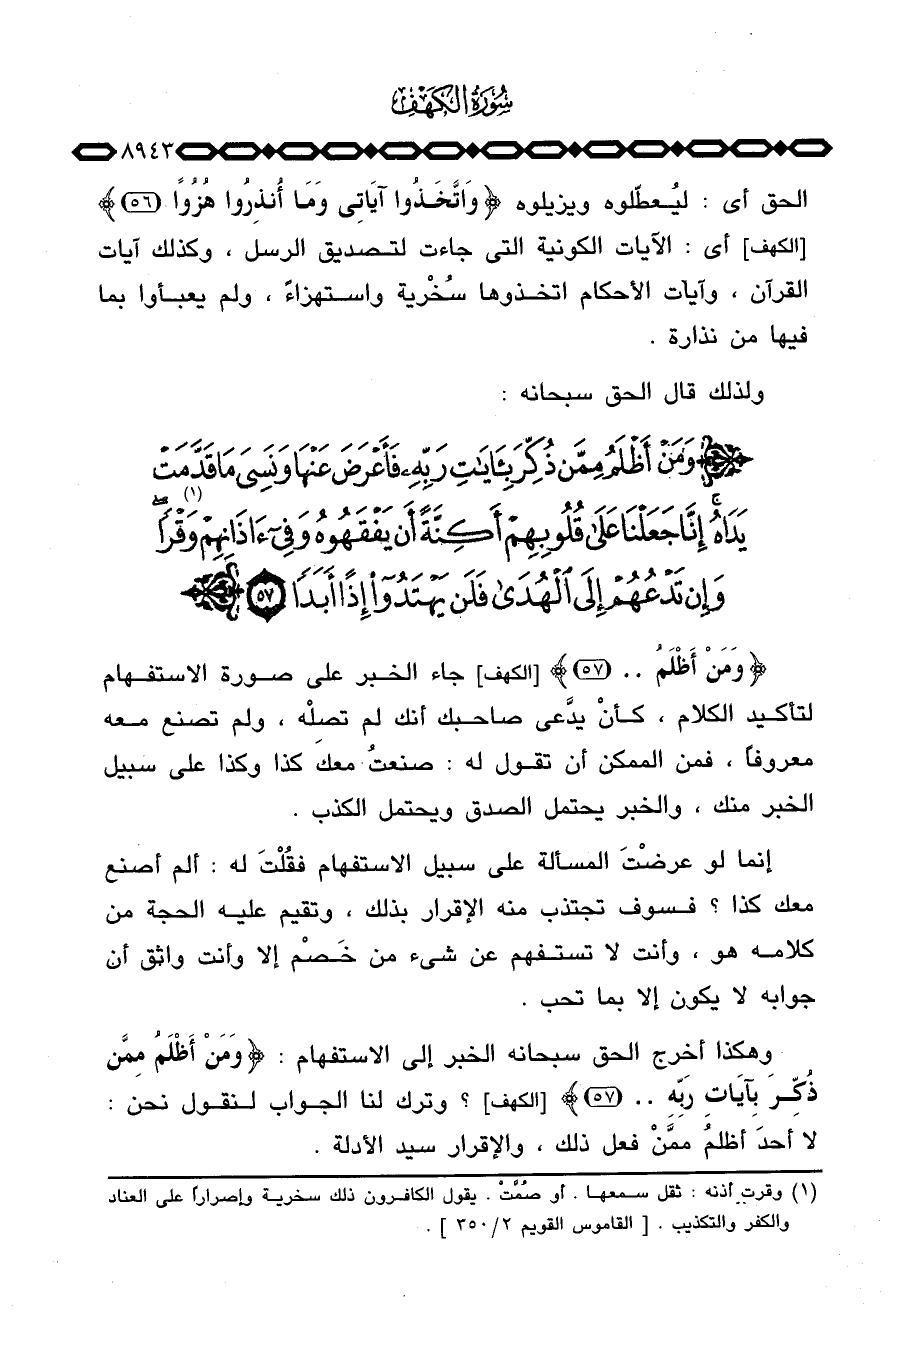 سُورَةُ الكَهْفِ
٨٩٤٣
الحق أى : ليُعطّلوه ويزيلوه ﴿ وَاتَّخَذُوا آيَاتِى وَمَا أُنذِرُوا هُزُوًا (٥٦) ﴾
[الكهف] أى : الآيات الكونية التى جاءت لتصديق الرسل ، وكذلك آيات
القرآن ، وآيات الأحكام اتخذوها سُخْرية واستهزاءً ، ولم يعبأوا بما
فيها من نذارة .
ولذلك قال الحق سبحانه :
وَمَنْ أَظْلَمُ مِمَّن ذُكِّرَ بِـَٔايَـٰتِ رَبِّهِۦ فَأَعْرَضَ عَنْهَا وَنَسِىَ مَا قَدَّمَتْ
يَدَاهُ ۚ إِنَّا جَعَلْنَا عَلَىٰ قُلُوبِهِمْ أَكِنَّةً أَن يَفْقَهُوهُ وَفِىٓ ءَاذَانِهِمْ وَقْرًا (١) ۖ
وَإِن تَدْعُهُمْ إِلَى ٱلْهُدَىٰ فَلَن يَهْتَدُوٓا۟ إِذًا أَبَدًا ٥٧
﴿ وَمَنْ أَظْلَمُ .. (٥٧) ﴾ [الكهف] جاء الخبر على صورة الاستفهام
لتأكيد الكلام ، كأنْ يدَّعى صاحبك أنك لم تصلْه ، ولم تصنع معه
معروفاً ، فمن الممكن أن تقول له : صنعتُ معك كذا وكذا على سبيل
الخبر منك ، والخبر يحتمل الصدق ويحتمل الكذب .
إنما لو عرضْتَ المسألة على سبيل الاستفهام فقُلْتَ له : ألم أصنع
معك كذا ؟ فسوف تجتذب منه الإقرار بذلك ، وتقيم عليه الحجة من
كلامه هو ، وأنت لا تستفهم عن شىء من خَصْم إلا وأنت واثق أن
جوابه لا يكون إلا بما تحب .
وهكذا أخرج الحق سبحانه الخبر إلى الاستفهام : ﴿ وَمَنْ أَظْلَمُ مِمَّن
ذُكِّرَ بِآيَاتِ رَبِّهِ .. (٥٧) ﴾ [الكهف] ؟ وترك لنا الجواب لنقول نحن :
لا أحدَ أظلمُ ممَّنْ فعل ذلك ، والإقرار سيد الأدلة .
(١) وقرت أذنه : ثقل سمعها . أو صُمَّتْ . يقول الكافرون ذلك سخرية وإصراراً على العناد
والكفر والتكذيب . [ القاموس القويم ٣٥٠/٢ ] .